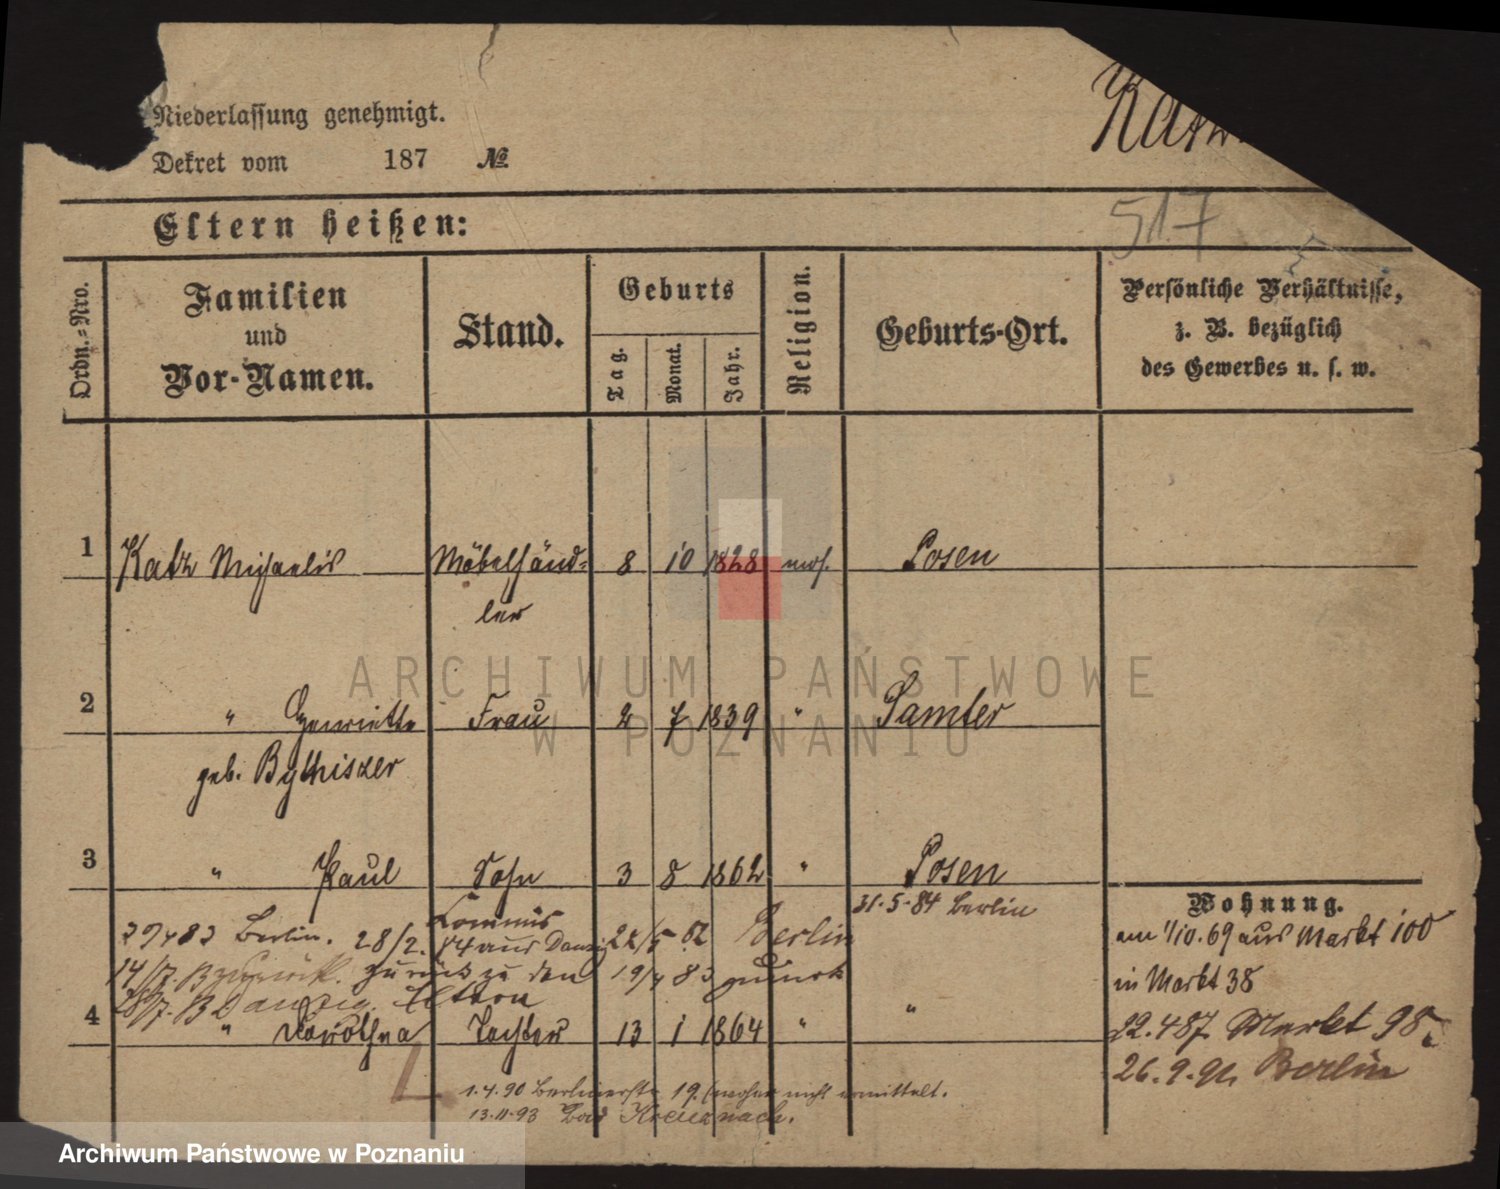 Niederlassung genehmigt.
Dekret vom 187 №
Katz
517
Eltern heißen:
Ordn.-Nro.
Familien
und
Vor-Namen.
Stand.
Geburts
Tag.
Monat.
Jahr.
Religion.
Geburts-Ort.
Persönliche Verhältnisse,
z. B. bezüglich
des Gewerbes u. s. w.
1 Katz Michaelis Möbelhänd- 8 10 1828 mos. Posen
ler
2 " Henriette Frau 2 7 1839 " Samter
geb. Bythiszer
3 " Paul Sohn 3 8 1862 " Posen
31.5.84 Berlin
Commis
Berlin. 28/2. 84 aus Danzig Berlin
14/7. B zurück. zurück zu den 19/4 83 zurück
28/7. B Danzig. Eltern
4 " Dorothea Tochter 13 1 1864 " "
1.4.90 Berlinerstr 19. (woher nicht ermittelt.
13.11.93 Bad Kreuznach.
Wohnung.
am 1/10.69 aus Markt 100
in Markt 38
22.4 87 Markt 98
26.9.91 Berlin
ARCHIWUM PAŃSTWOWE
W POZNANIU
Archiwum Państwowe w Poznaniu